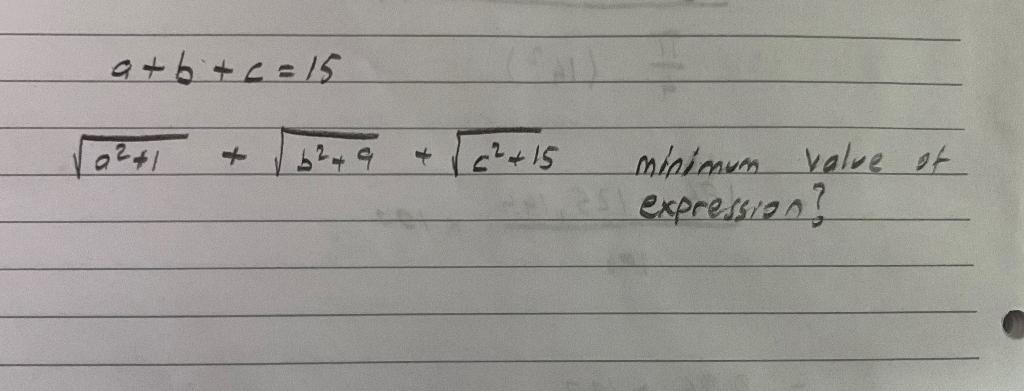 a+b+c=15
√a²+1 + √b²+9 + √c²+15 minimum value of
expression?